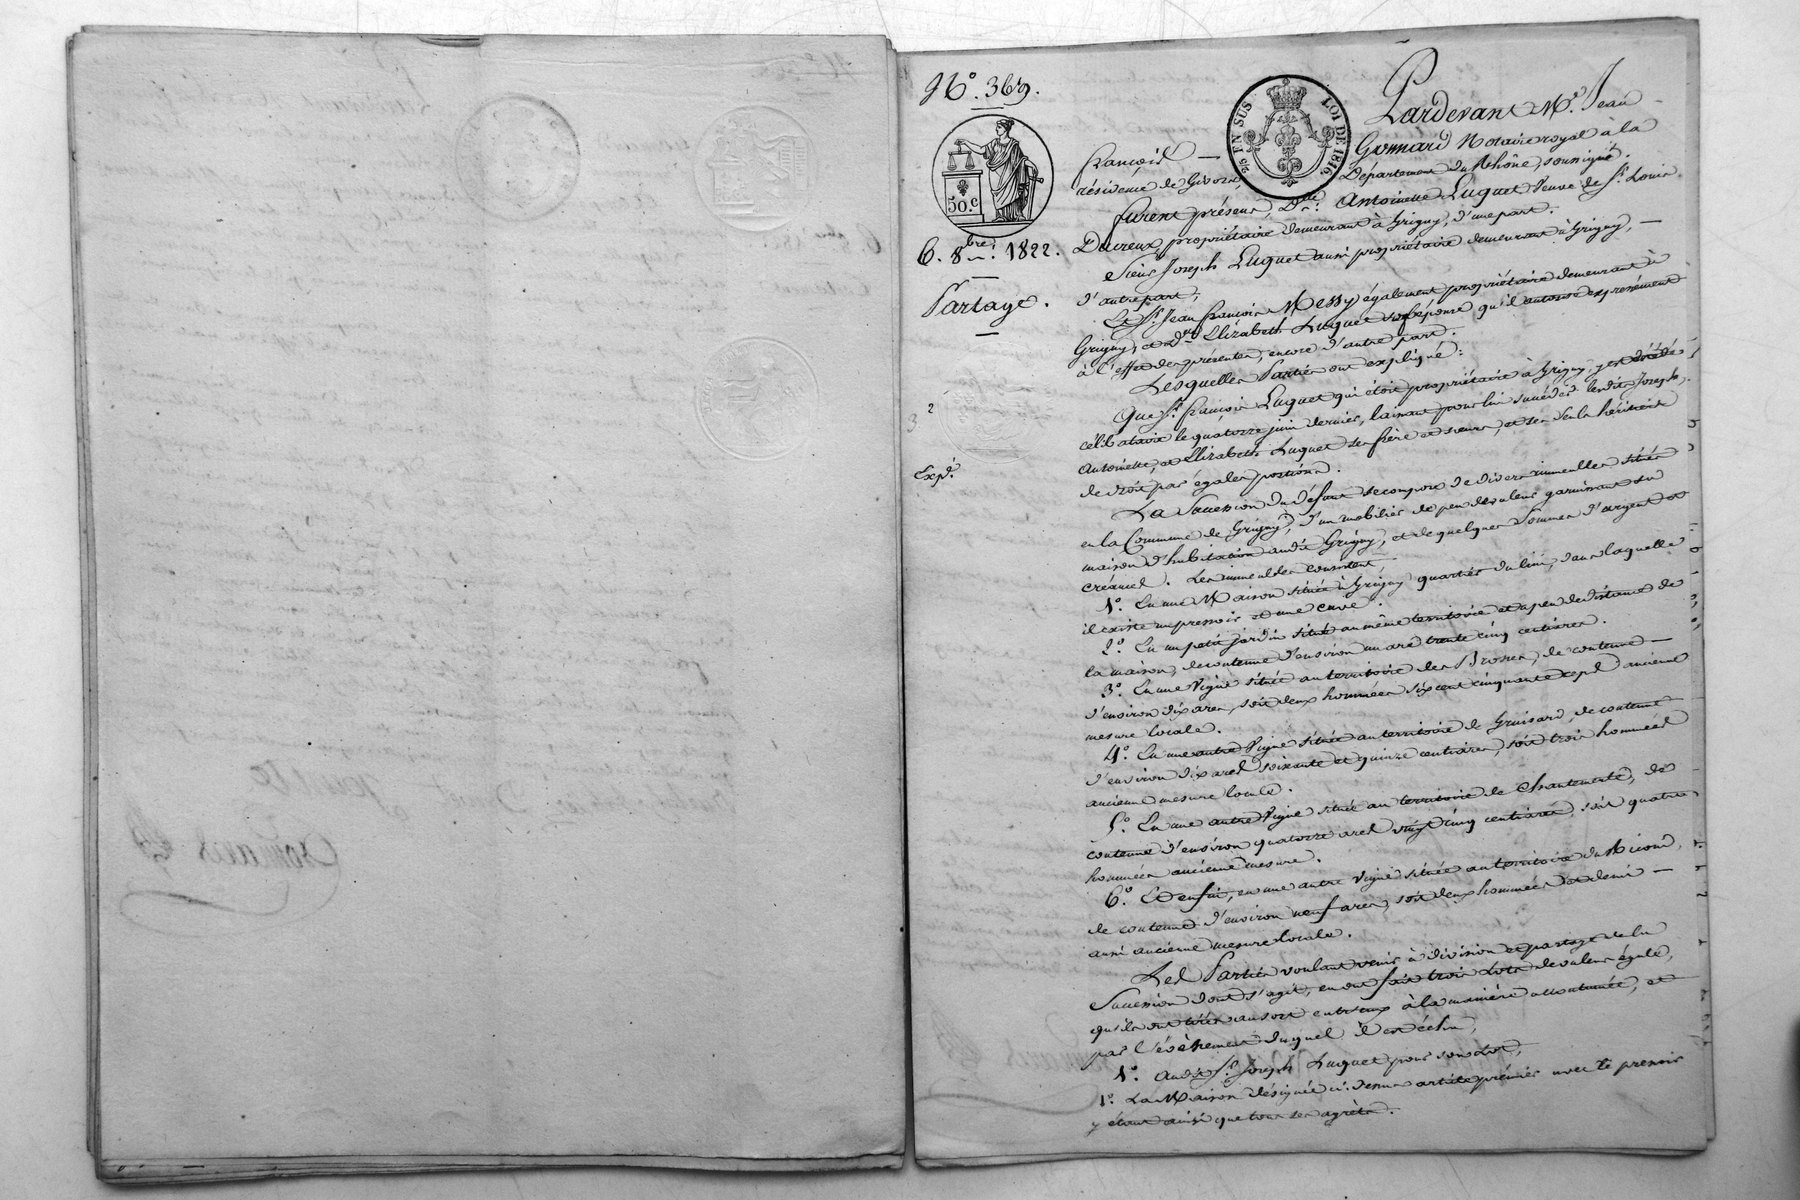 N.° 369.
25 IN SUS
LOI DE 1816.
50.c
6. 8bre 1822.
Partage.
2
3
Expé.
Pardevant Me. Jean
françois — Gonnard Notaire royal à la
résidence de Givors, Département du Rhône, soussigné.
furent présens, Dlle. Antoinette Luquet Veuve de Sr. Louis
Ducreux, propriétaire demeurant à Grigny, d'une part.
Sieur Joseph Luquet aussi propriétaire demeurant à Grigny, —
d'autre part,
Le Sr. Jean françois Messy également propriétaire demeurant à
Grigny, et De. Elizabeth Luquet son épouse qu'il autorise expressément
à l'effet des présentes, encore d'autre part.
Lesquelles Parties ont expliqué:
Que Sr. françois Luquet qui étoit propriétaire à Grigny, y est décédé
célibataire le quatorze juin dernier, laissant pour lui succéder lesdits Joseph,
Antoinette, et Elizabeth Luquet ses frère et sœurs, et ses seuls héritiers
de droit, par égales portions.
La Succession du défunt se compose de divers immeubles situés
en la Commune de Grigny, d'un mobilier de peu de valeur garnissant sa
maison d'habitation audit Grigny, et de quelques Sommes d'argent et
créances. Les immeubles consistent,
1°. En une Maison située à Grigny quartier du , dans laquelle
il existe un pressoir et une cuve.
2°. En un petit jardin situé au même territoire et à peu de distance de
la maison, de contenue d'environ un are trente cinq centiares.
3°. En une Vigne située au territoire des Brosses, de contenue —
d'environ dix ares, soit deux hommées six cent cinquante sept ancienne
mesure locale.
4°. En une autre Vigne située au territoire de Gruisard, de contenue
d'environ dix ares soixante et quinze centiares, soit trois hommées
ancienne mesure locale.
5°. En une autre Vigne située au territoire de Chantemerle, de
contenue d'environ quatorze ares vingt cinq centiares, soit quatre
hommées ancienne mesure.
6°. Et enfin, en une autre Vigne située au territoire du ,
de contenue d'environ neuf ares, soit deux hommées et demi —
aussi ancienne mesure locale.
Les Parties voulant venir à division et partage de la
Succession dont s'agit, en ont fait trois Lots de valeur égale,
qu'ils ont tirés au sort entr'eux à la manière accoutumée, et
par l'évènement duquel il est échu,
1°. Audit Sr. Joseph Luquet pour son Lot,
1°. La Maison désignée ci-dessus article premier avec le pressoir
y étant ainsi que tous ses agrès.